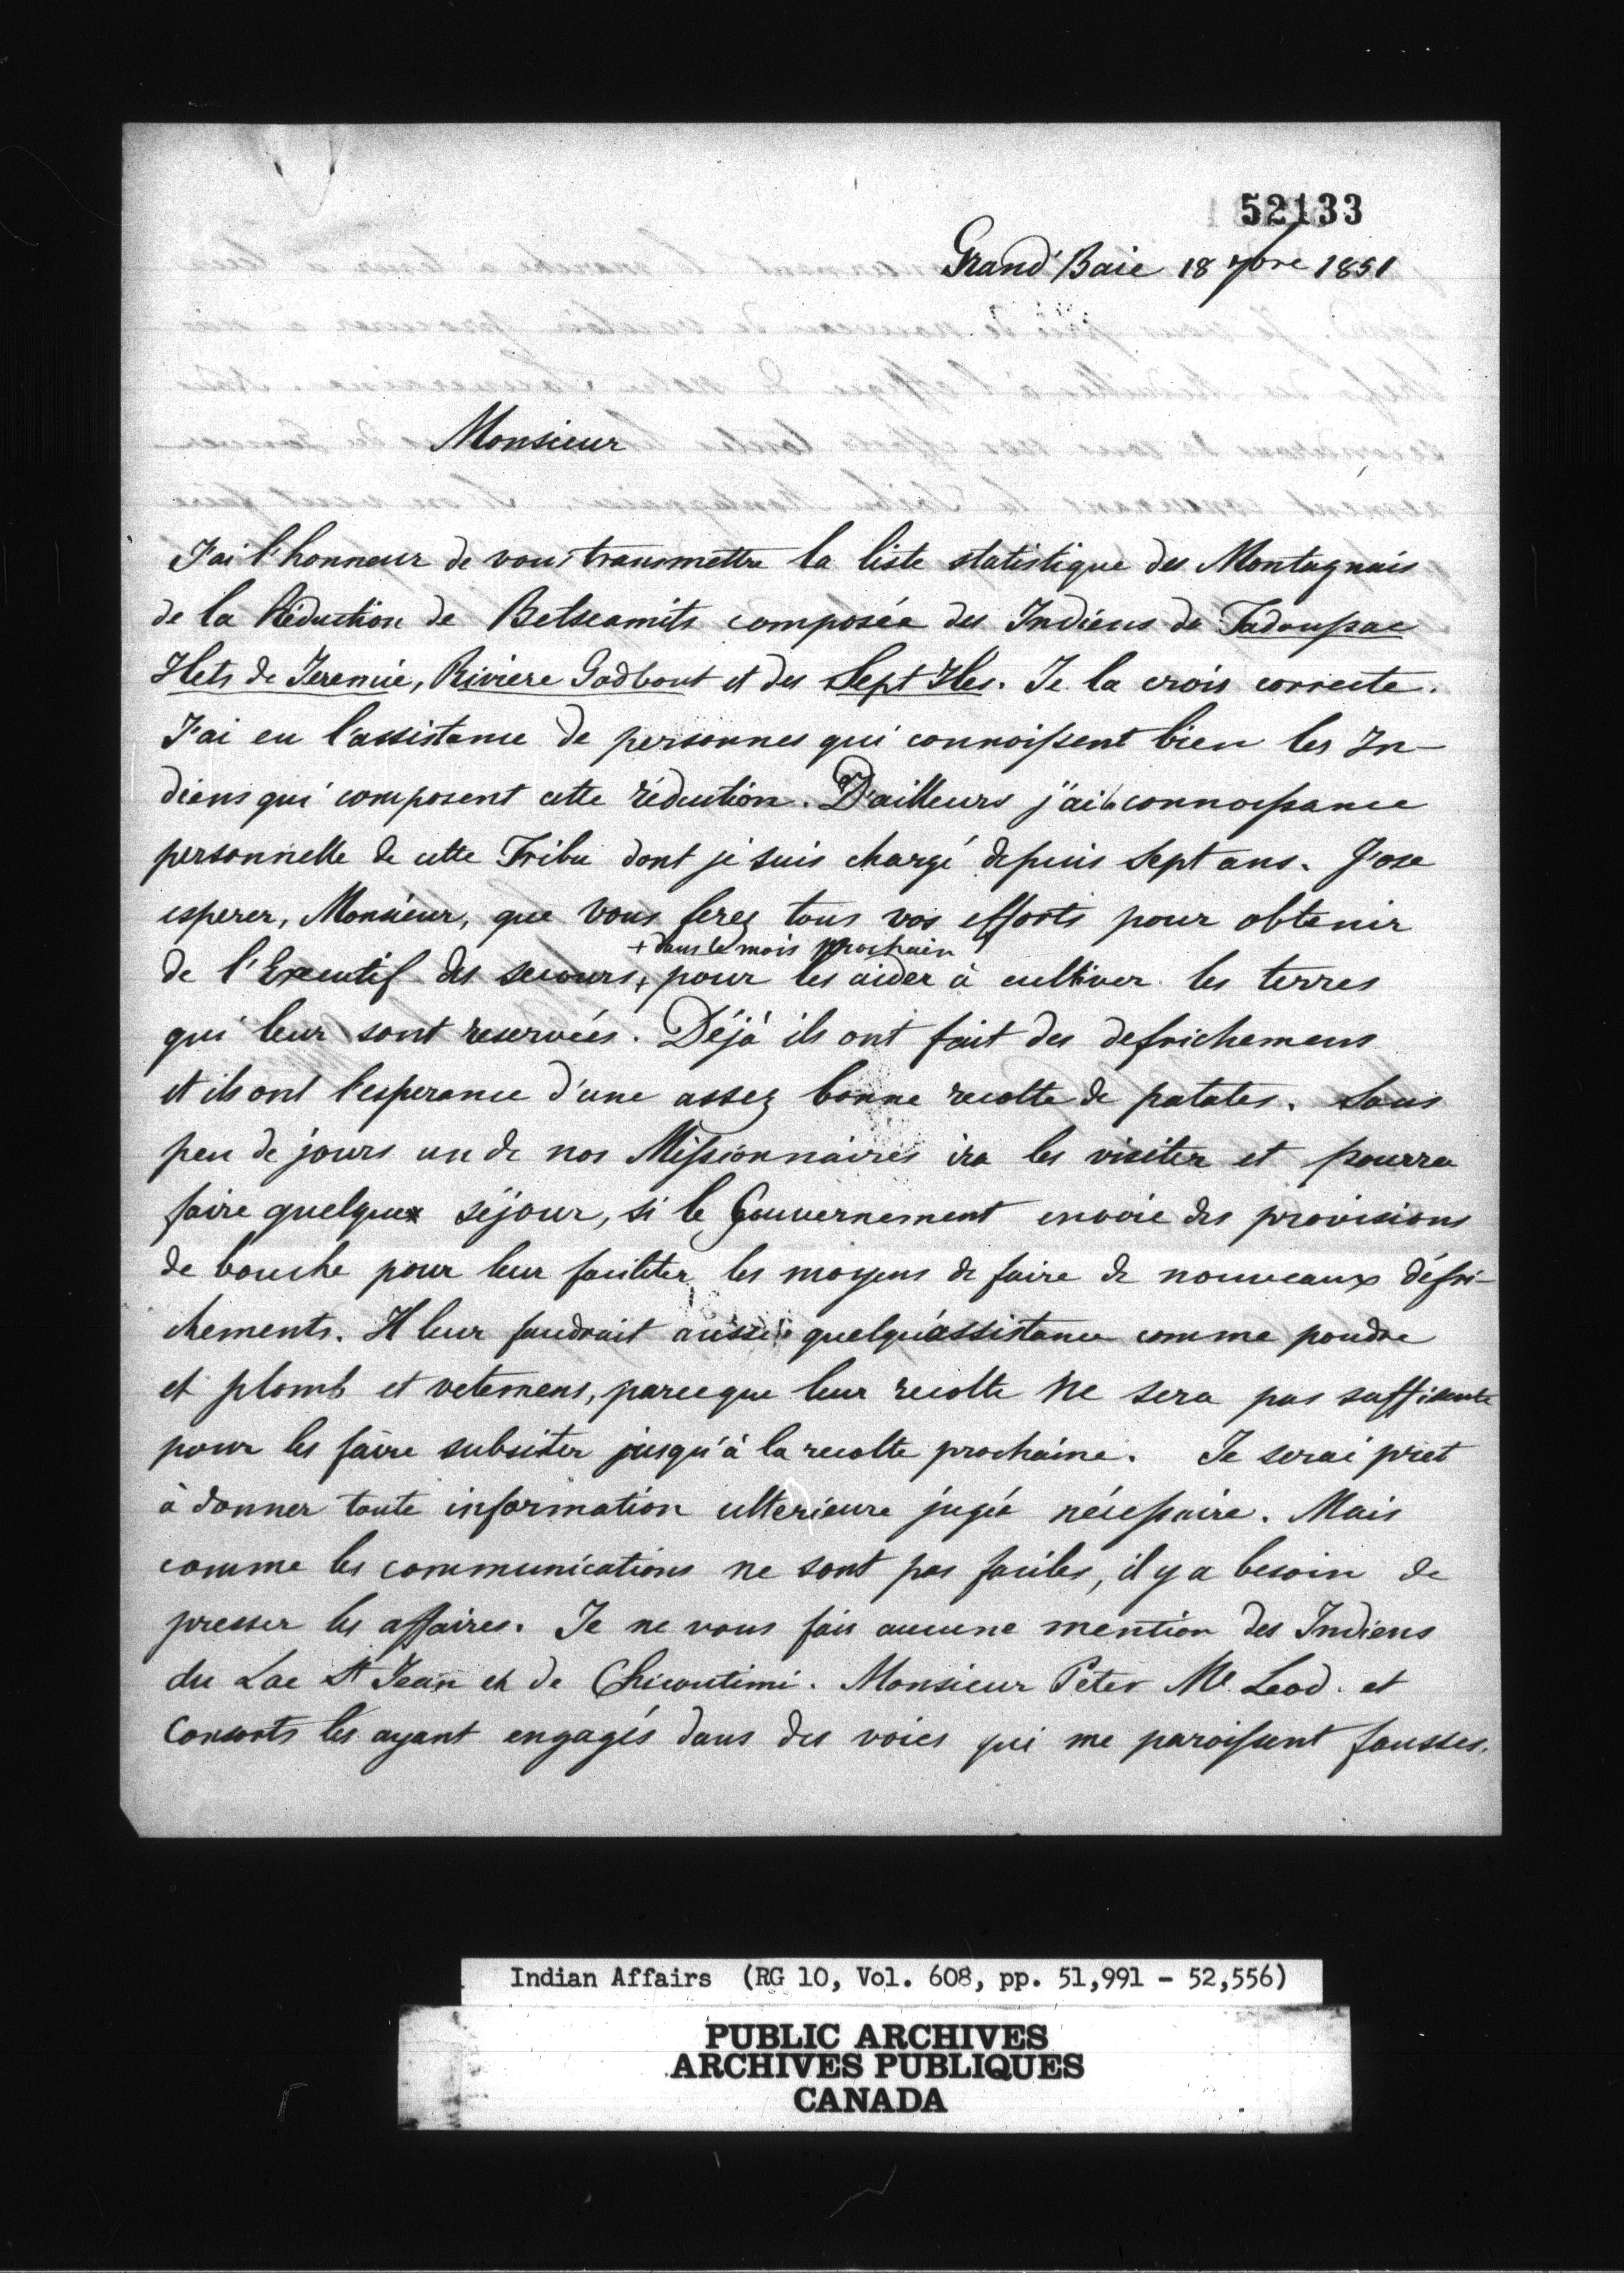 52133
Grand'Baie 18 7bre 1851
Monsieur
J'ai l'honneur de vous transmettre la liste statistique des Montagnais
de la Réduction de Betseamits composée des Indiens de Tadoussac
Ilets de Jeremie, Riviere Godbout et des Sept Iles. Je la crois correcte.
J'ai eu l'assistance de personnes qui connoissent bien les In-
diens qui composent cette réduction. D'ailleurs j'ai la connoissance
personnelle de cette Tribu dont je suis chargé depuis sept ans. J'ose
esperer, Monsieur, que vous ferez tous vos efforts pour obtenir
+ dans le mois prochain
de l'Executif des secours + pour les aider à cultiver les terres
qui leur sont reservées. Déjà ils ont fait des defrichemens
et ils ont l'esperance d'une assez bonne recolte de patates. Sous
peu de jours un de nos Missionnaires ira les visiter et pourra
faire quelque séjour, si le Gouvernement envoie des provisions
de bouche pour leur faciliter les moyens de faire de nouveaux défri-
chements. Il leur faudrait aussi quelqu'assistance comme poudre
et plomb et vetemens, parceque leur recolte ne sera pas suffisante
pour les faire subsiter jusqu'à la recolte prochaine. Je serai pret
à donner toute information ulterieure jugée nécessaire. Mais
comme les communications ne sont pas faciles, il y a besoin de
presser les affaires. Je ne vous fais aucune mention des Indiens
du Lac St Jean et de Chicoutimi. Monsieur Peter Mc Leod. et
Consorts les ayant engagés dans des voies qui me paroissent fausses.
Indian Affairs (RG 10, Vol. 608, pp. 51,991 - 52,556)
PUBLIC ARCHIVES
ARCHIVES PUBLIQUES
CANADA